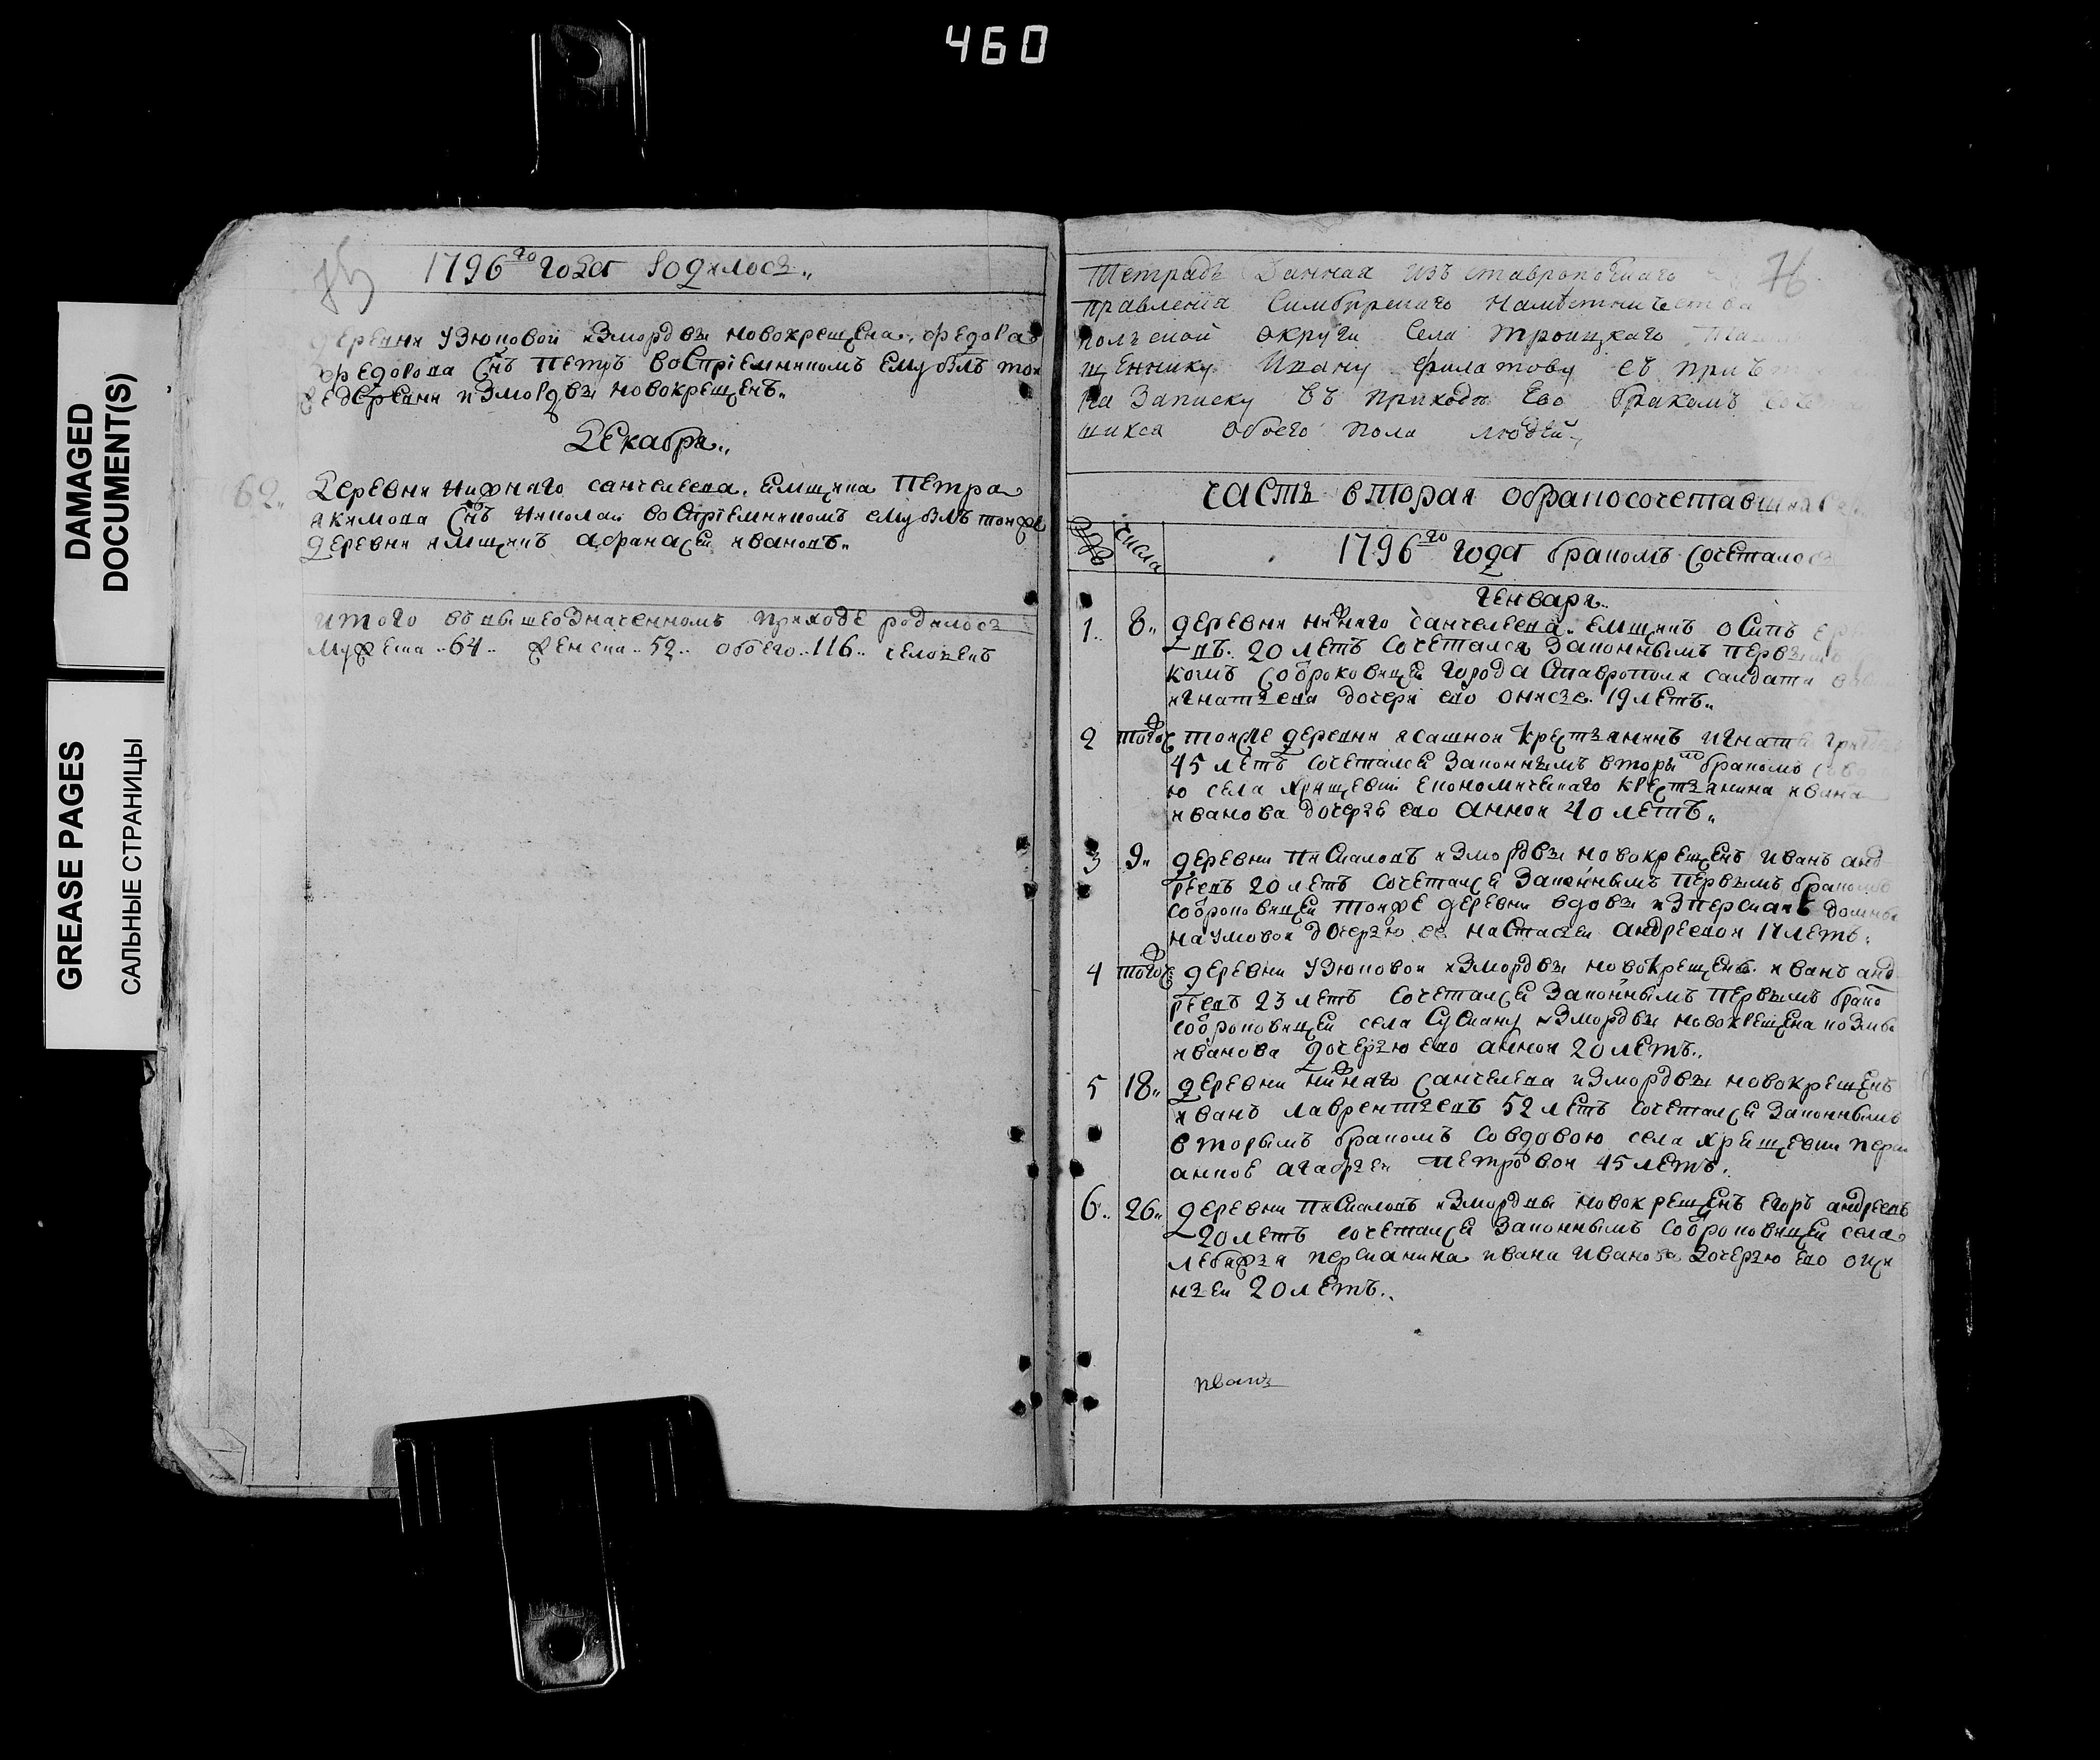 460
DAMAGED
DOCUMENT(S)
GREASE PAGES
САЛЬНЫЕ СТРАНИЦЫ
1796го года родилось
деревни Узюковой измордвы новокрещена федора
федорова снъ Петръ воспріемникомъ ему былъ той
деревни измордвы новокрещенъ
Декабря
62 Деревни нижнаго санчелеева ямщика Петра
акимова снъ николай воспріемникомъ ему былъ тойже
деревни ямщикъ афанасей ивановъ
итого въ вышеозначенномъ приходе родилось
мужеска 64 женска 52 обоего 116 человекъ
76
Тетрадь Данная изъ ставропольскаго
правленія Симбирскаго намѣстничества
польской округи Села Троицкаго
щеннику Ивану филатову съ
на Записку въ приходѣ Ево бракомъ
шихся обоего пола людей
часть вторая обракосочетавшихся
числа
1796го года бракомъ сочеталось
генварь
1 8 деревни нижнаго санчелеева ямщикъ осипъ
въ 20 летъ сочетался законнымъ первымъ
комъ соброковицей города Ставрополя салдата
игнатьева дочери ево 19 летъ
2 тогож тойже деревни ясашной крестьянинъ игнатей
45 летъ сочетался законнымъ вторымъ бракомъ
ю села хрящевки економическаго крестьянина ивана
иванова дочерью ево анной 40 летъ
3 9 деревни Пискаловъ измордвы новокрещенъ иванъ анд
реевъ 20 летъ сочетался законнымъ первымъ бракомъ
соброковицей тойже деревни вдовы изперсиянъ домны
наумовой дочерью ее настасьей андреевой 17 летъ
4 тогож деревни Узюковой измордвы новокрещенъ иванъ анд
реевъ 23 летъ сочетался законнымъ первымъ брако
соброковицей села Сускану измордвы новокрещена козмы
иванова дочерью ево анной 20 летъ
5 18 деревни нижнаго санчелеева измордвы новокрещенъ
иванъ лаврентьевъ 52 летъ сочетался законнымъ
вторымъ бракомъ совдовою села хрящевки перси
анкое агафьей петровой 45 летъ
6 26 деревни Пискаловъ измордвы новокрещенъ егоръ андреевъ
20 летъ сочетался законнымъ соброковицей села
лебяжья персианина ивана иванова дочерью ево
20 летъ
иванъ